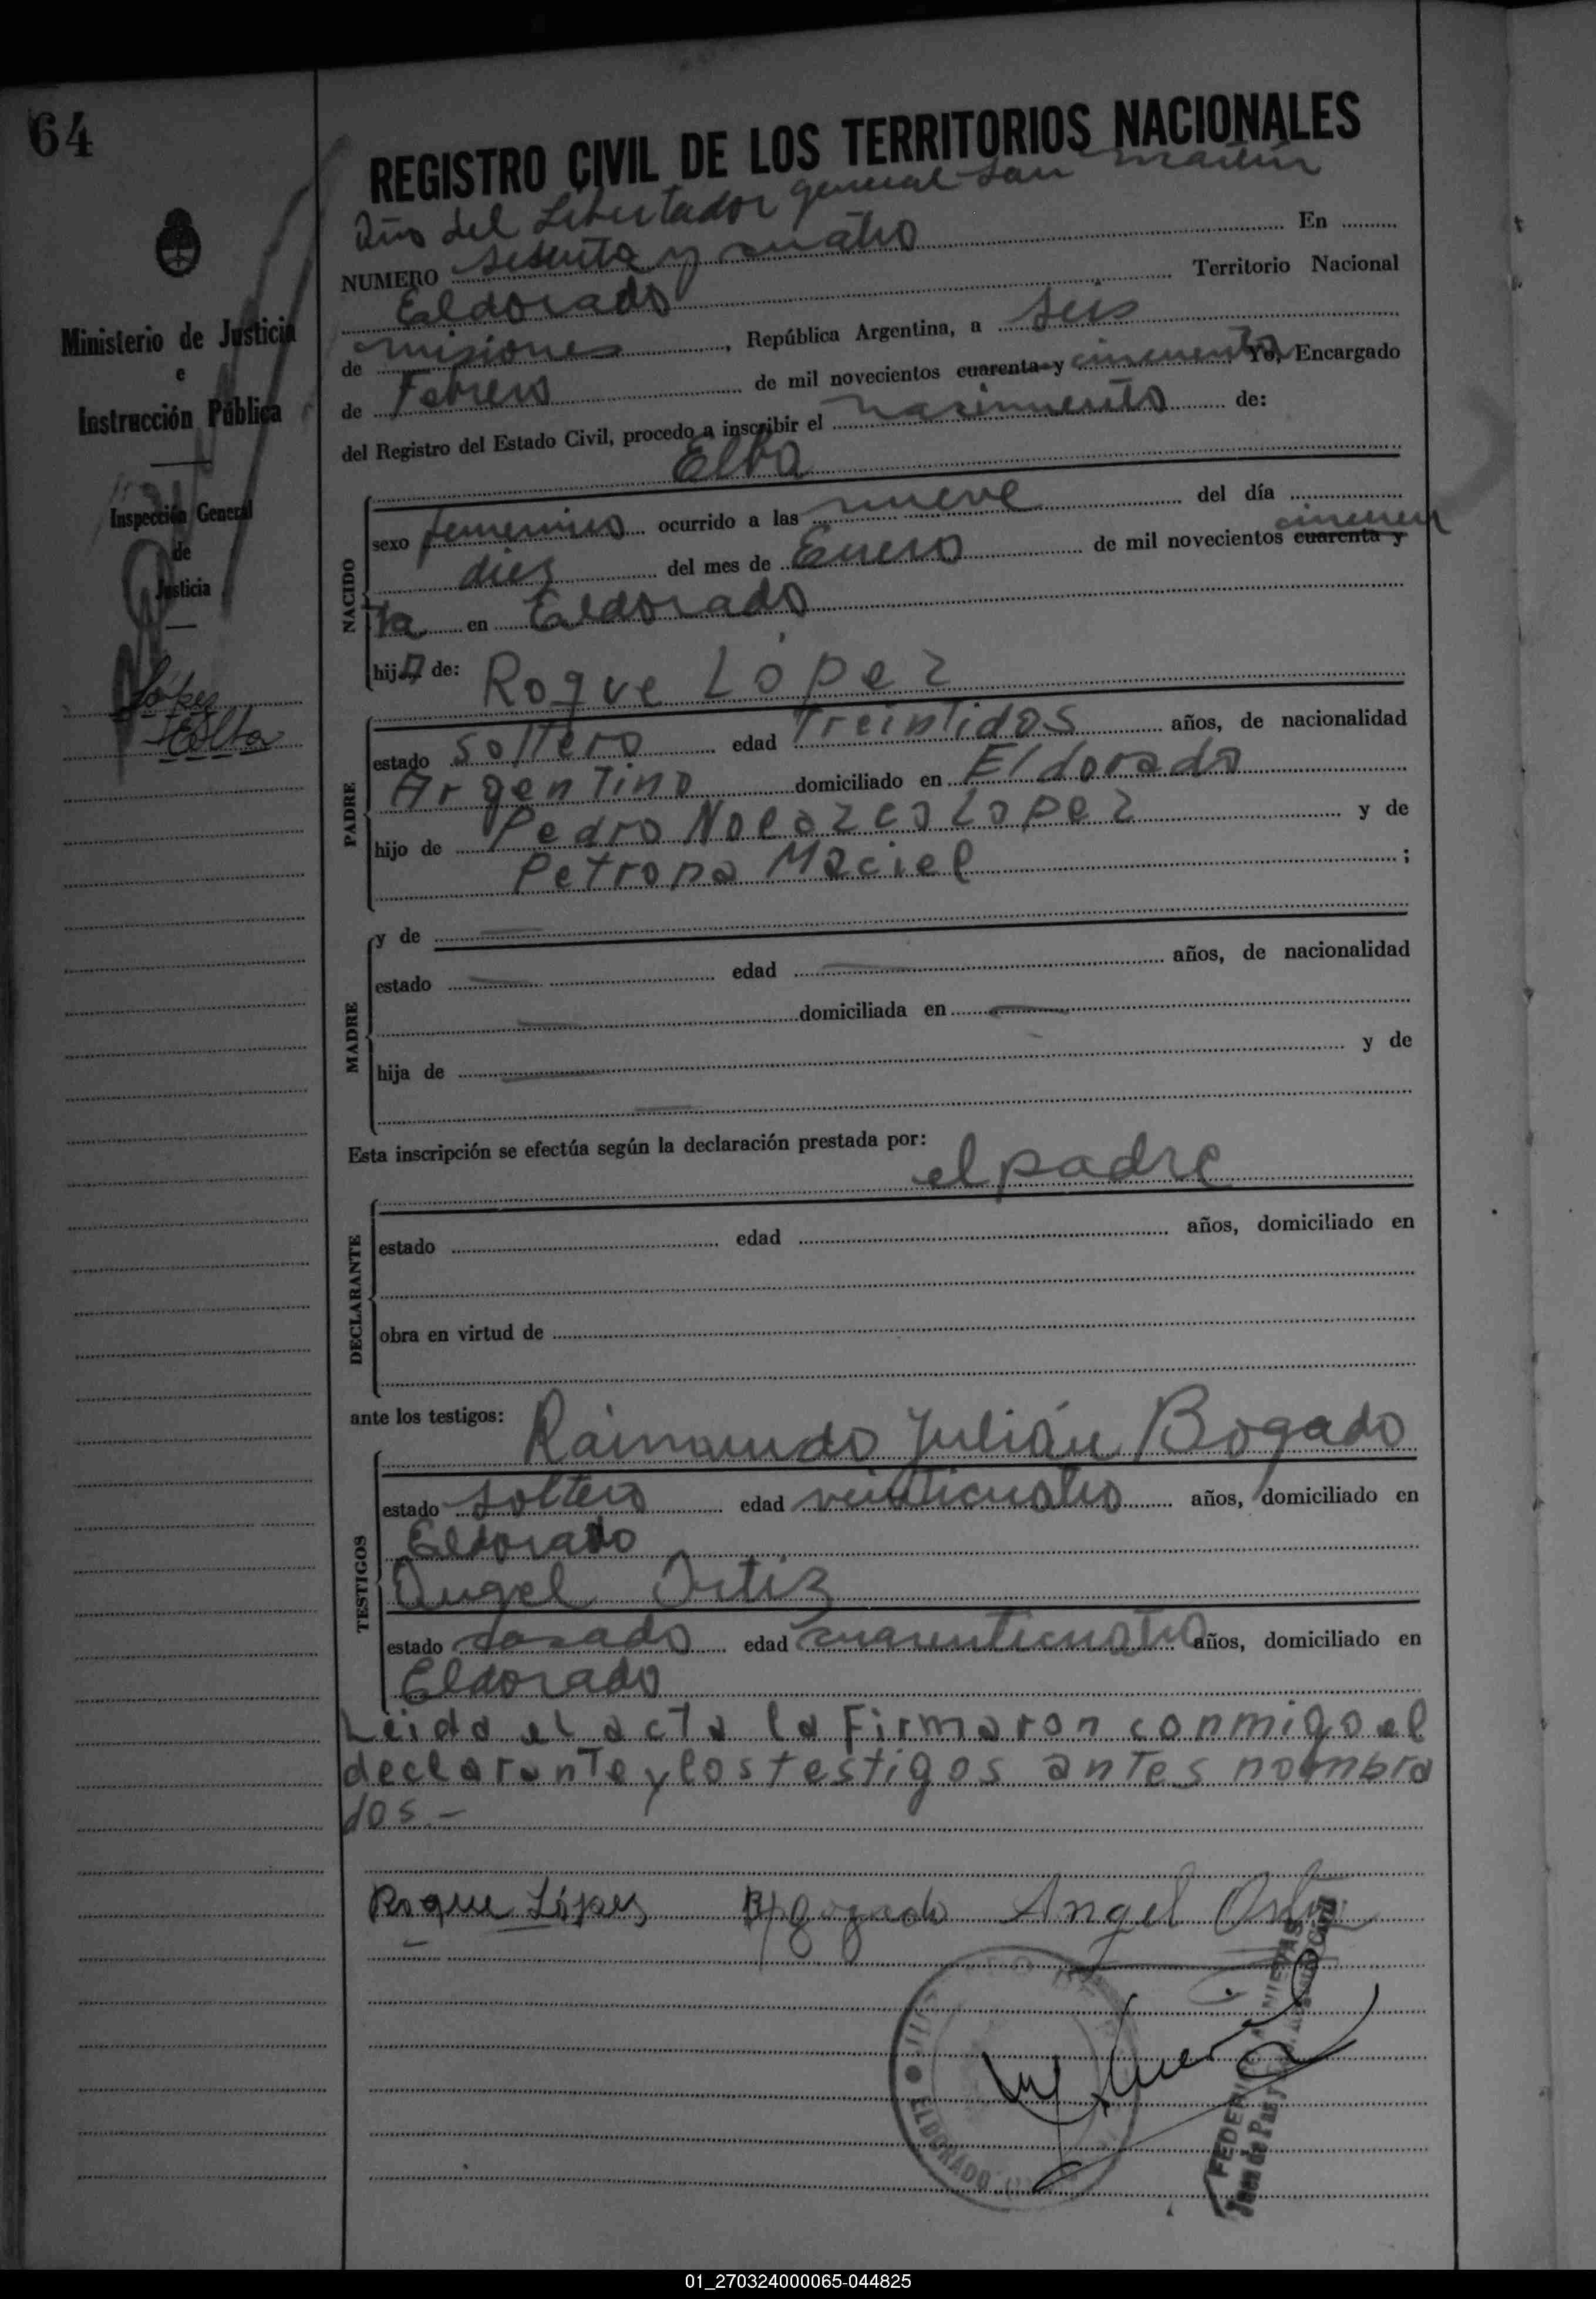 64
REGISTRO CIVIL DE LOS TERRITORIOS NACIONALES
Año del Libertador general San Martín
NUMERO sesenta y cuatro En
Eldorado Territorio Nacional
de misiones, República Argentina, a seis
de Febrero de mil novecientos cuarenta y cincuenta Yo, Encargado
del Registro del Estado Civil, procedo a inscribir el nacimiento de:
Elba
sexo femenino ocurrido a las nueve del día
diez del mes de Enero de mil novecientos cuarenta y cincuen
ta en Eldorado
hija de: Roque López
NACIDO
estado soltero edad Treintidos años, de nacionalidad
Argentino domiciliado en Eldorado
hijo de Pedro Nolazco Lopez y de
Petrona Maciel ;
PADRE
y de
estado edad años, de nacionalidad
domiciliada en
hija de y de
MADRE
Esta inscripción se efectúa según la declaración prestada por:
el padre
estado edad años, domiciliado en
obra en virtud de
DECLARANTE
ante los testigos: Raimundo Julián Bogado
estado soltero edad veinticuatro años, domiciliado en
Eldorado
Angel Ortiz
estado casado edad cuarenticuatro años, domiciliado en
Eldorado
TESTIGOS
Leida el acta la Firmaron conmigo el
declarante y los testigos antes nombra
dos.-
Roque López Bogado Angel Ortiz
ELDORADO
FEDERICO NIEVAS
Juez de Paz
Ministerio de Justicia
e
Instrucción Pública
Inspección General
de
Justicia
López
Elba
01_270324000065-044825